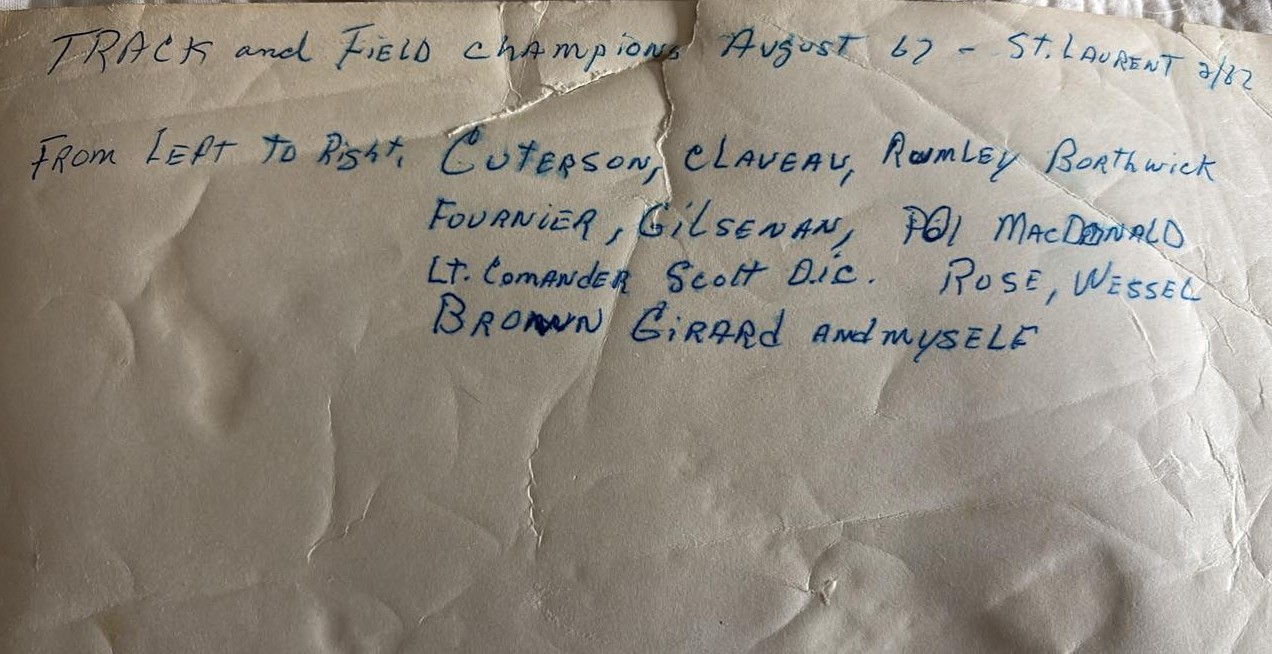 TRACK and FIELD champions August 67 - ST. LAURENT 2/82
FROM LEFT TO Right. CUTERSON, CLAVEAU, Rumley Borthwick
FOURNIER, GILSENAN, PO1 MACDONALD
Lt. COMANDER Scott D.i.c. ROSE, WESSEL
BROWN GIRARd ANd MYSELF